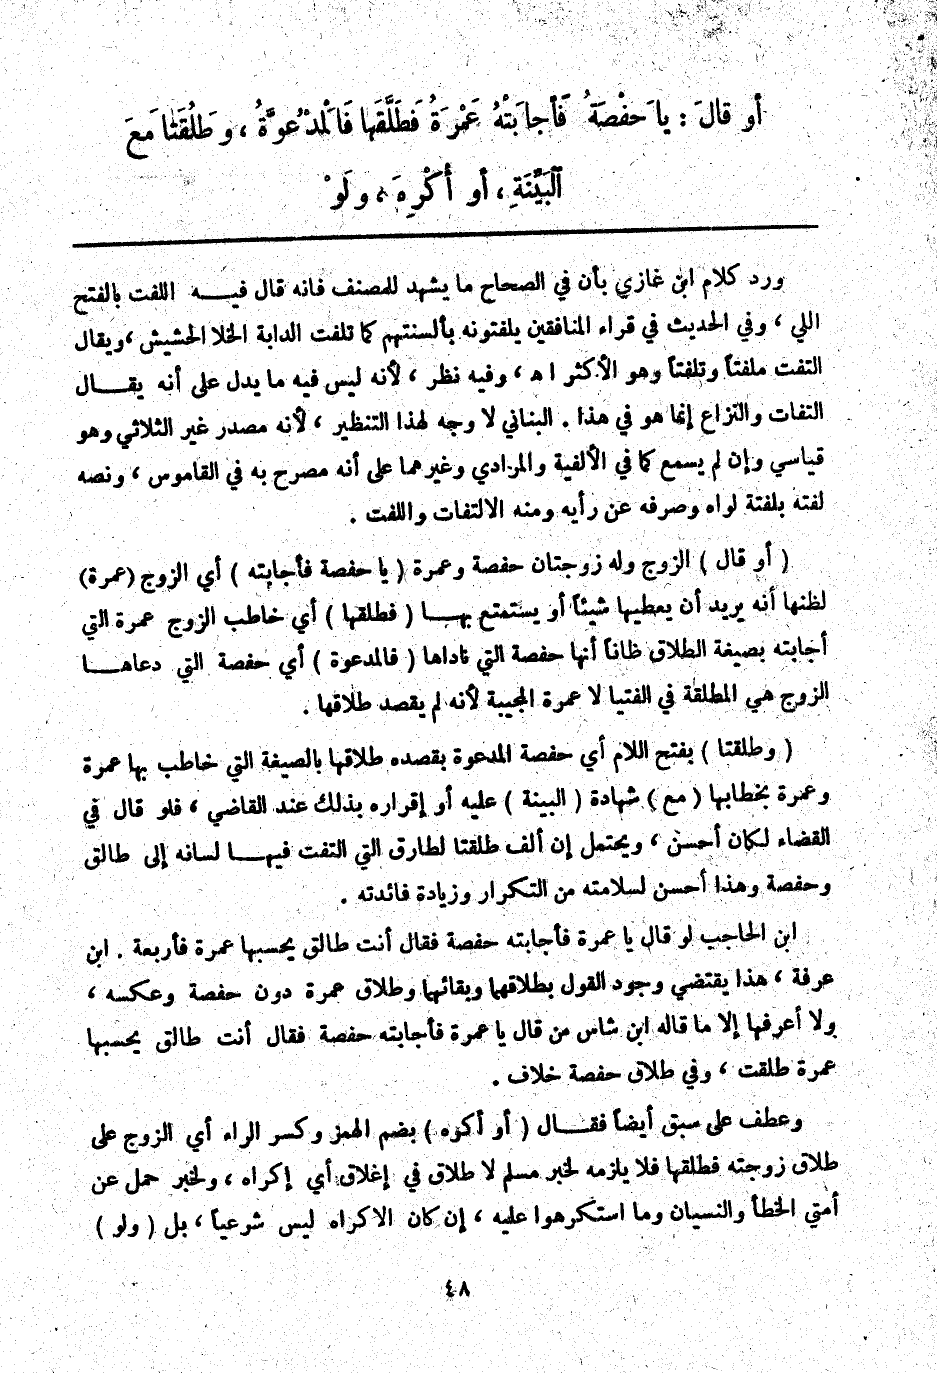 أو قالَ : يا حَفْصَةُ فَأجابَتْهُ عَمْرَةُ فَطَلَّقَها فَالْمَدْعُوَّةُ ، و طَلُقَتَا مَعَ
ٱلْبَيِّنَةِ ، أو أُكْرِهَ ، ولَوْ
ورد كلام ابن غازي بأن في الصحاح ما يشهد للمصنف فانه قال فيـــه اللفت بالفتح
اللي ، وفي الحديث في قراء المنافقين يلفتونه بألسنتهم كما تلفت الدابة الخلا الحشيش ، ويقال
التفت ملفتاً وتلفتاً وهو الأكثر ا ه ، وفيه نظر ، لأنه ليس فيه ما يدل على أنه يقــــال
التفات والنزاع إنما هو في هذا . البناني لا وجه لهذا التنظير ، لأنه مصدر غير الثلاثي وهو
قياسي وإن لم يسمع كما في الألفية والمرادي وغيرهما على أنه مصرح به في القاموس ، ونصه
لفته بلفتة لواه وصرفه عن رأيه ومنه الالتفات واللفت .
( أو قال ) الزوج وله زوجتان حفصة وعمرة ( يا حفصة فأجابته ) أي الزوج (عمرة)
لظنها أنه يريد أن يعطيها شيئاً أو يستمتع بهـــا ( فطلقها ) أي خاطب الزوج عمرة التي
أجابته بصيغة الطلاق ظاناً أنها حفصة التي ناداها ( فالمدعوة ) أي حفصة التي دعاهــــا
الزوج هي المطلقة في الفتيا لا عمرة المجيبة لأنه لم يقصد طلاقها .
( وطلقتا ) بفتح اللام أي حفصة المدعوة بقصده طلاقها بالصيغة التي خاطب بها عمرة
وعمرة بخطابها ( مع ) شهادة ( البينة ) عليه أو إقراره بذلك عند القاضي ، فلو قال في
القضاء لكان أحسن ، ويحتمل إن ألف طلقتا لطارق التي التفت فيهـــا لسانه إلى طالق
وحفصة وهذا أحسن لسلامته من التكرار وزيادة فائدته .
ابن الحاجب لو قال يا عمرة فأجابته حفصة فقال أنت طالق يحسبها عمرة فأربعة . ابن
عرفة ، هذا يقتضي وجود القول بطلاقهما وبقائهما وطلاق عمرة دون حفصة وعكسه ،
ولا أعرفها إلا ما قاله ابن شاس من قال يا عمرة فأجابته حفصة فقال أنت طالق يحسبها
عمرة طلقت ، وفي طلاق حفصة خلاف .
وعطف على سبق أيضاً فقـــال ( أو أكره ) بضم الهمز وكسر الراء أي الزوج على
طلاق زوجته فطلقها فلا يلزمه لخبر مسلم لا طلاق في إغلاق أي إكراه ، ولخبر حمل عن
أمتي الخطأ والنسيان وما استكرهوا عليه ، إن كان الاكراه ليس شرعياً ، بل ( ولو )
٤٨